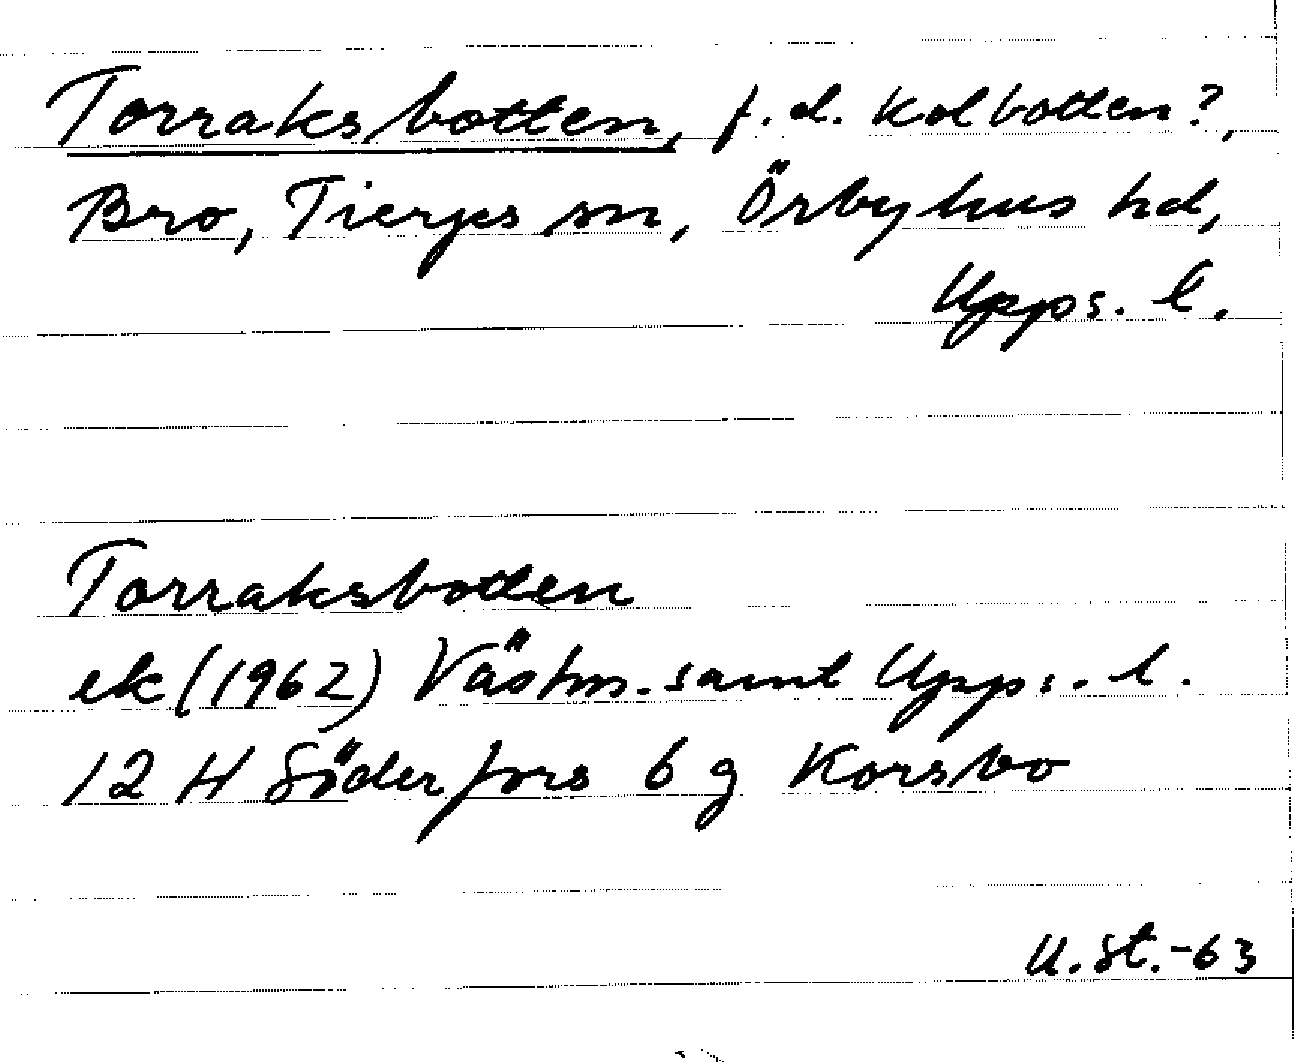 Torraksbotten, f.d. kolbotten?,
Bro, Tierps sn, Örbyhus hd,
Upps. l.
Torraksbotten
ek (1962) Västm. samt Upps. l.
12 H Söderfors 6 g Korsbo
U.St.-63